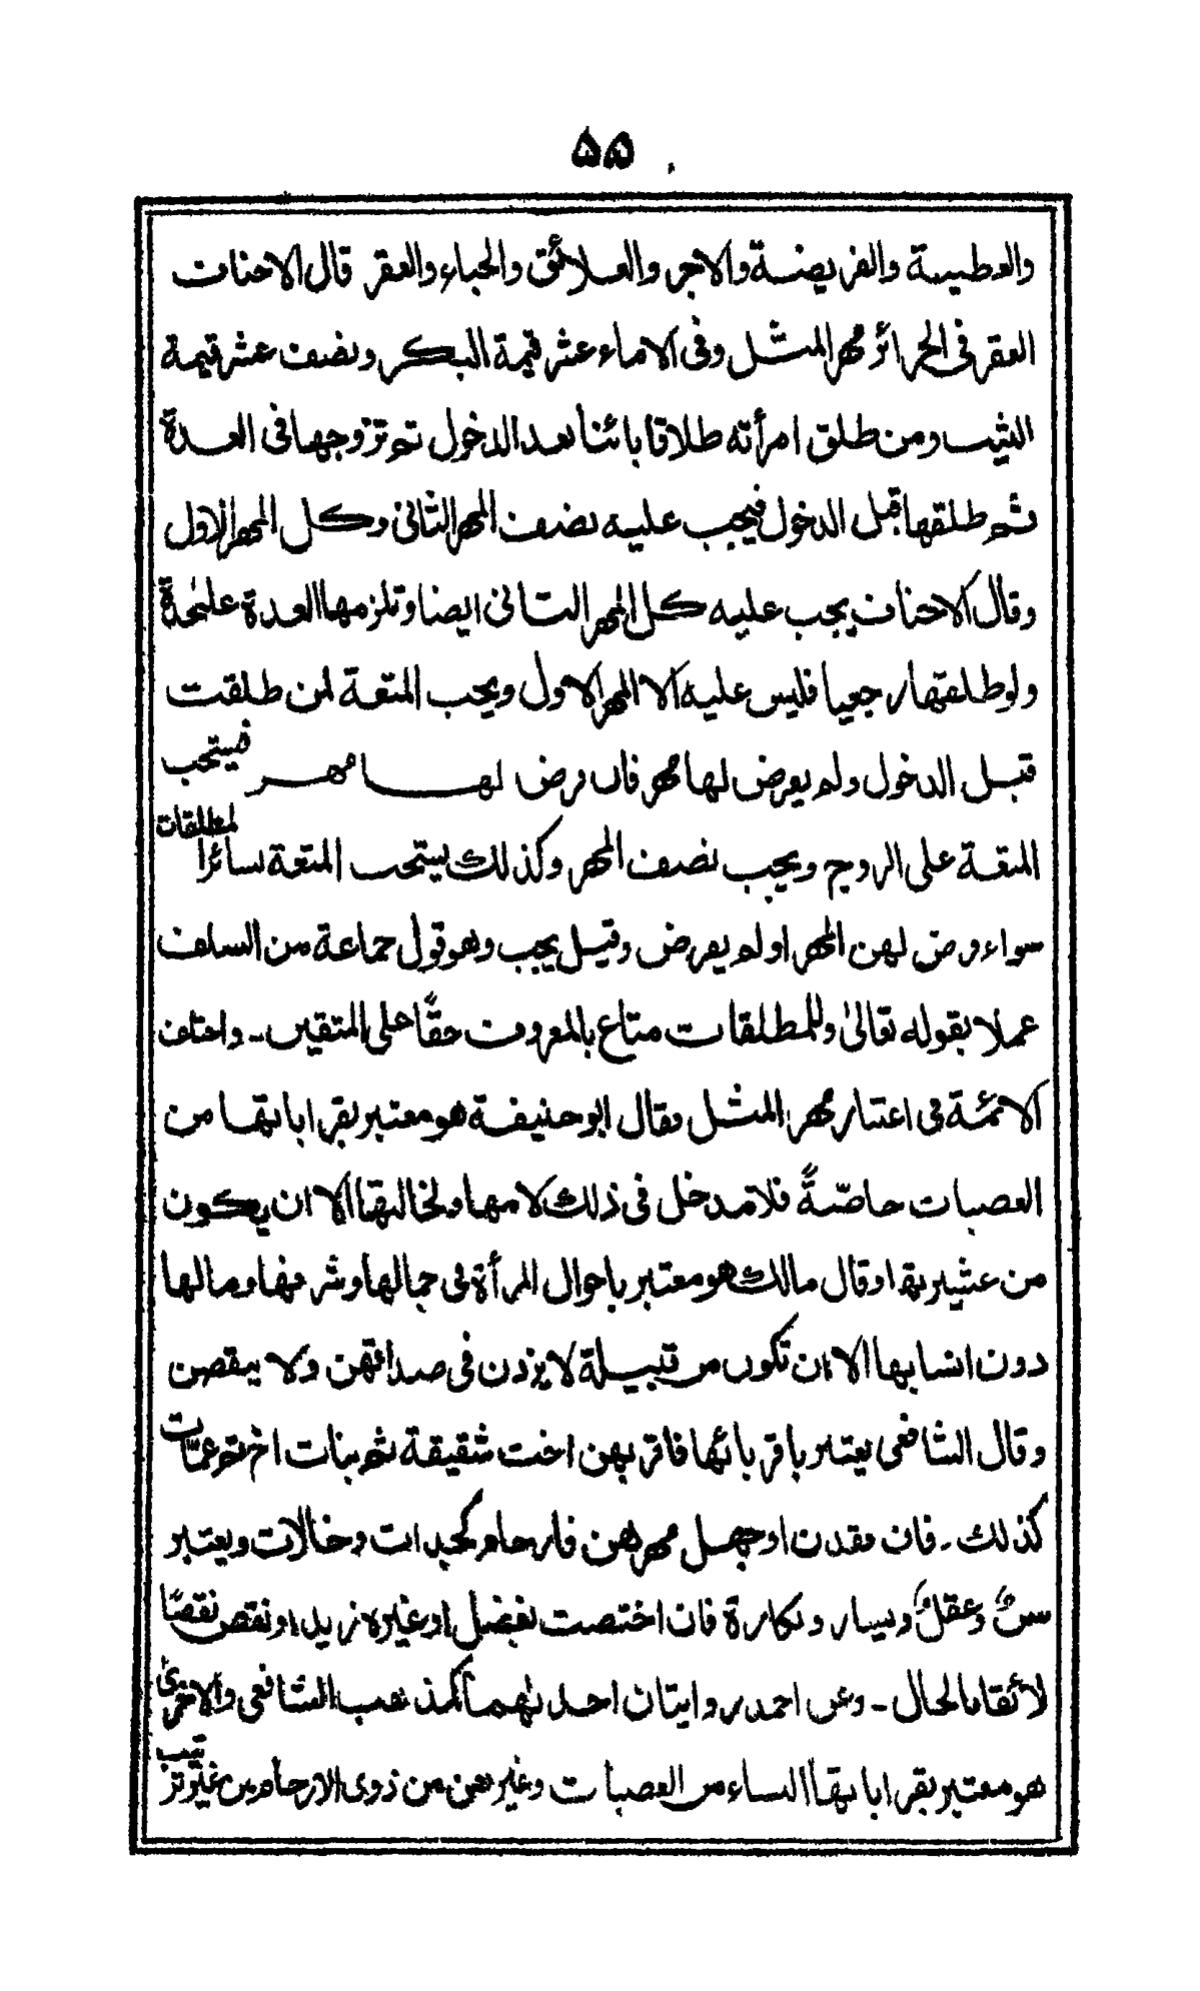 ۵۵
والعطية والفريضة والاجر والعلائق والحباء والعقر قال الاحناف
العقر فى الحرائر مهر المثل وفى الاماء عشر قيمة البكر ونصف عشر قيمة
الثيب ومن طلق امرأته طلاقا بائنا بعد الدخول ثم تزوجها فى العدة
ثم طلقها قبل الدخول فيجب عليه نصف المهر الثانى وكل المهر الاول
وقال الاحناف يجب عليه كل المهر الثانى ايضا وتلزمها العدة علىٰحدة
ولو طلقها رجعيا فليس عليه الا المهر الاول ويجب المتعة لمن طلقت
قبل الدخول ولم يعرض لها مهر فان فرض لها مهر فيستحب
المتعة على الزوج ويجب نصف المهر وكذلك يستحب المتعة لسائر المطلقات
سواء فرض لهن المهر او لم يفرض وقيل يجب وهو قول جماعة من السلف
عملا بقوله تعالىٰ وللمطلقات متاع بالمعروف حقًا على المتقين ـ واختلف
الائمة فى اعتبار مهر المثل فقال ابو حنيفة هو معتبر بقراباتها من
العصبات خاصّةً فلا مدخل فى ذلك لامها ولخالتها الا ان يكون
من عشيرتها وقال مالك هو معتبر باحوال المرأة فى جمالها وشرفها ومالها
دون انسابها الا ان تكون من قبيلة لا يزدن فى صداقهن ولا ينقصن
وقال الشافعى يعتبر باقربائها فاقربهن اخت شقيقة ثم بنات اخ ثم عمّات
كذلك ـ فان فقدن او جهل مهرهن فارحام كجدات وخالات ويعتبر
سنٌ وعقلٌ ويسار وبكارة فان اختصت بفضل او غيره زيد او نقص نقصًا
لائقا بالحال ـ وعن احمد روايتان احدٰهما كمذهب الشافعى والاخرىٰ
هو معتبر بقراباتها النساء من العصبات وغيرهن من ذوى الارحام من غير ترتيب